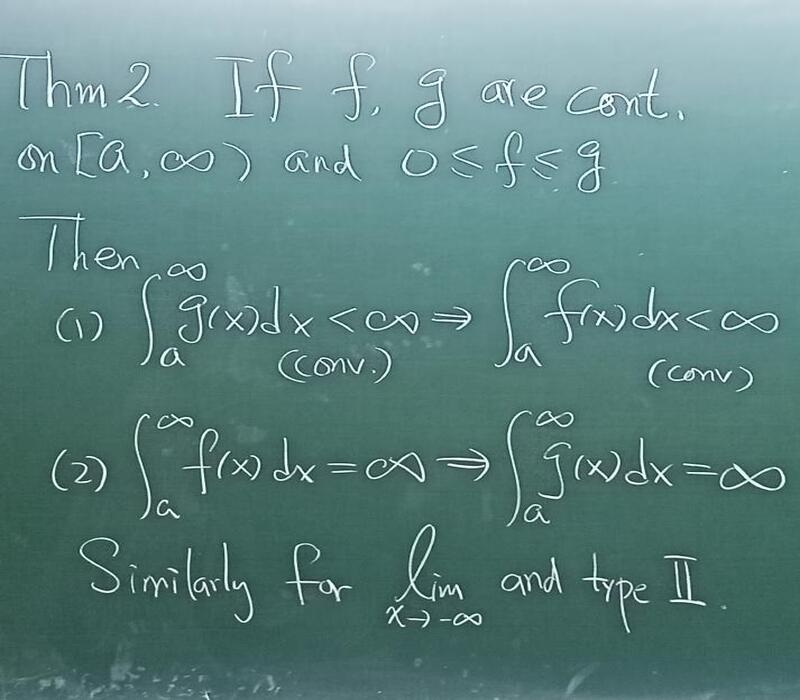 Thm 2. If f, g are cont.
on [a, ∞) and 0 ≤ f ≤ g
Then
(1) ∫_a^∞ g(x)dx < ∞ ⇒ ∫_a^∞ f(x)dx < ∞
(conv.) (conv)
(2) ∫_a^∞ f(x)dx = ∞ ⇒ ∫_a^∞ g(x)dx = ∞
Similarly for lim_{x→-∞} and type II.